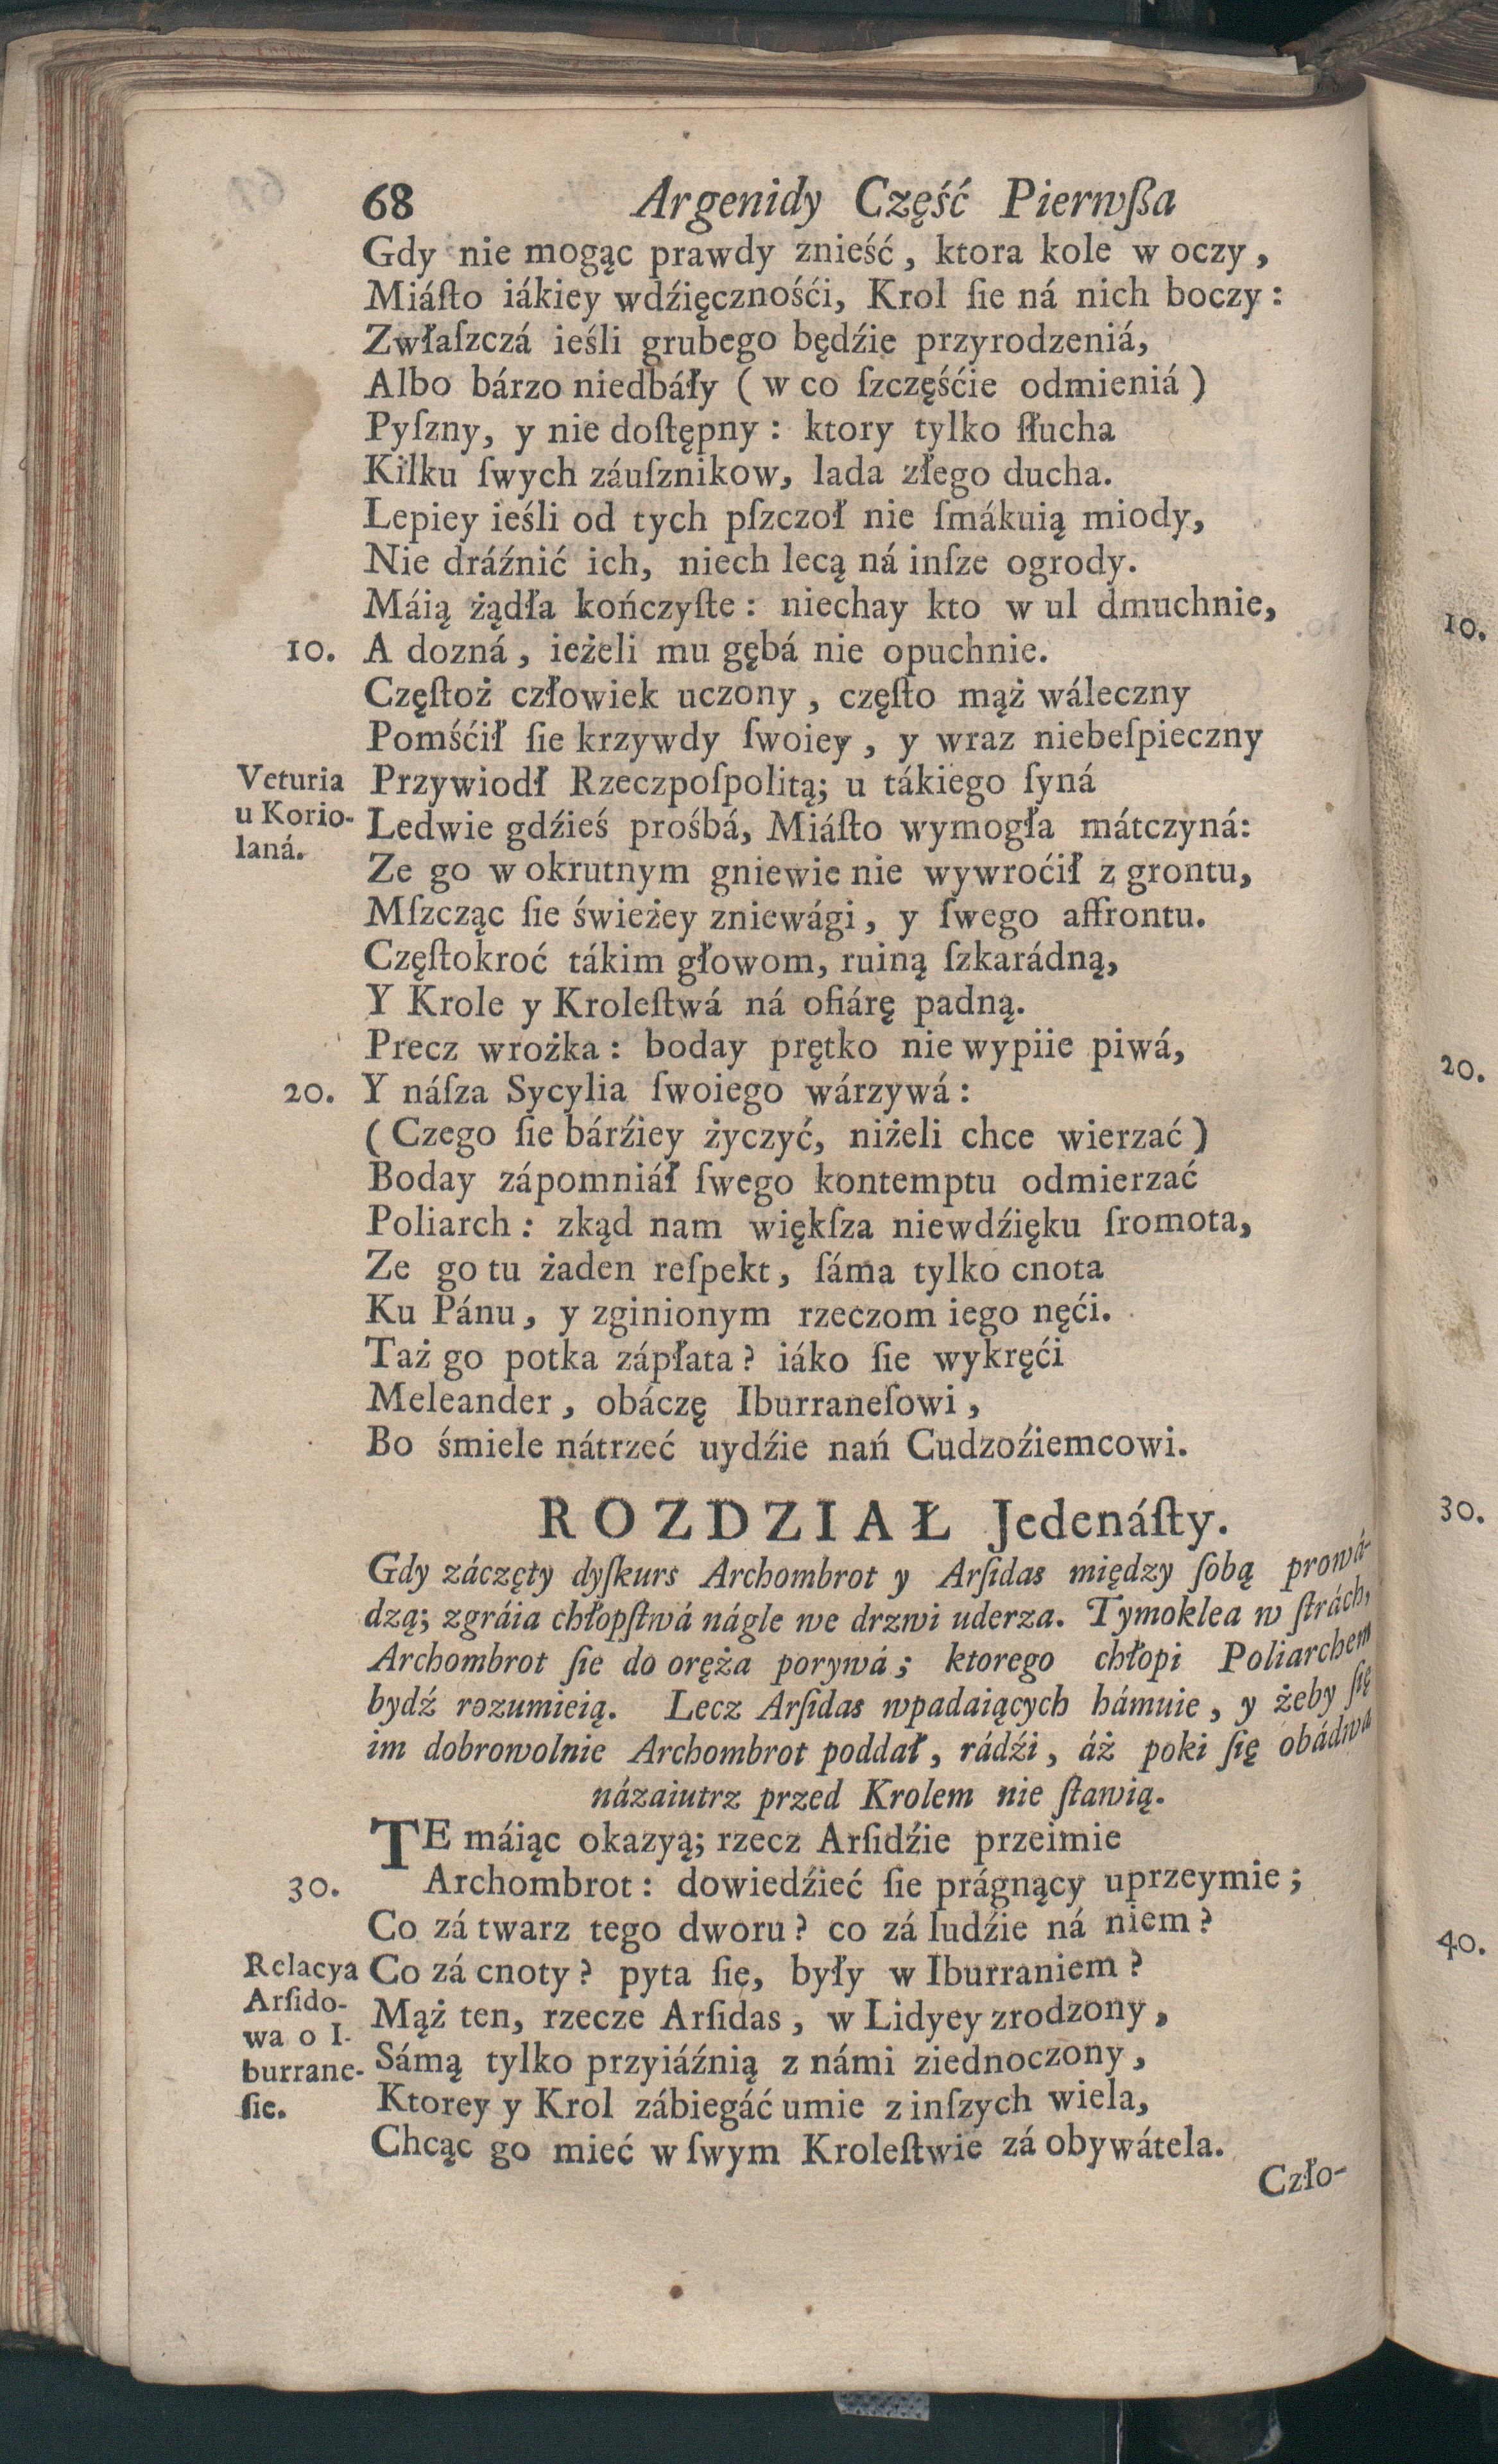 68 Argenidy Część Pierwſßa
Gdy nie mogąc prawdy znieść, ktora kole w oczy,
Miáſto iákiey wdźięcznośći, Krol ſie ná nich boczy:
Zwłaſzczá ieśli grubego będźie przyrodzeniá,
Albo bárzo niedbáły (w co ſzczęśćie odmieniá)
Pyſzny, y nie doſtępny: ktory tylko ſłucha
Kilku ſwych záuſznikow, lada złego ducha.
Lepiey ieśli od tych pſzczoł nie ſmákuią miody,
Nie dráźnić ich, niech lecą ná inſze ogrody.
Máią żądła kończyſte: niechay kto w ul dmuchnie,
10. A dozná, ieżeli mu gębá nie opuchnie.
Częſtoż człowiek uczony, częſto mąż wáleczny
Pomśćił ſie krzywdy ſwoiey, y wraz niebeſpieczny
Veturia Przywiodł Rzeczpoſpolitą; u tákiego ſyná
u Korio- Ledwie gdźieś prośbá, Miáſto wymogła mátczyná:
laná.
Ze go w okrutnym gniewie nie wywroćił z grontu,
Mſzcząc ſie świeżey zniewági, y ſwego affrontu.
Częſtokroć tákim głowom, ruiną ſzkarádną,
Y Krole y Kroleſtwá ná ofiárę padną.
Precz wrożka: boday prętko nie wypiie piwá,
20. Y náſza Sycylia ſwoiego wárzywá:
(Czego ſie bárźiey życzyć, niżeli chce wierzać)
Boday zápomniáł ſwego kontemptu odmierzać
Poliarch: zkąd nam więkſza niewdźięku ſromota,
Ze go tu żaden reſpekt, ſáma tylko cnota
Ku Pánu, y zginionym rzeczom iego nęći.
Taż go potka zápłata? iáko ſie wykręći
Meleander, obáczę Iburraneſowi,
Bo śmiele nátrzeć uydźie nań Cudzoźiemcowi.
ROZDZIAŁ Jedenáſty.
Gdy záczęty dyſkurs Archombrot y Arſidas między ſobą prowá-
dzą; zgráia chłopſtwá nágle we drzwi uderza. Tymoklea w ſtrách,
Archombrot ſie do oręża porywá; ktorego chłopi Poliarchem
bydź rozumieią. Lecz Arſidas wpadaiących hámuie, y żeby ſię
im dobrowolnie Archombrot poddał, rádźi, áż poki ſię obádwa
názaiutrz przed Krolem nie ſtawią.
TE máiąc okazyą; rzecz Arſidźie przeimie
30. Archombrot: dowiedźieć ſie prágnący uprzeymie;
Co zá twarz tego dworu? co zá ludźie ná niem?
Relacya Co zá cnoty? pyta ſię, były w Iburraniem?
Arſido- Mąż ten, rzecze Arſidas, w Lidyey zrodzony,
wa o I-
burrane- Sámą tylko przyiáźnią z námi ziednoczony,
ſie. Ktorey y Krol zábiegáć umie z inſzych wiela,
Chcąc go mieć w ſwym Kroleſtwie zá obywátela.
Czło-
10.
20.
30.
40.